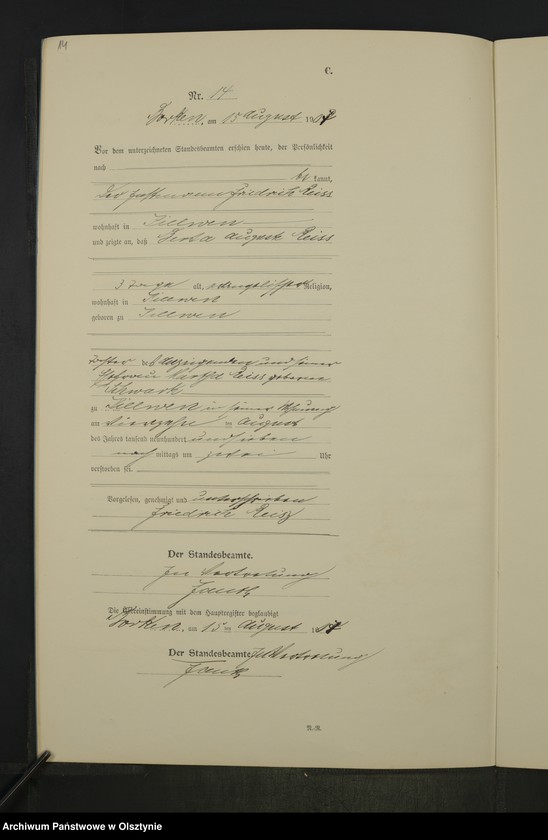 14
C.
Nr. 14
Borken, am 15 August 1907
Vor dem unterzeichneten Standesbeamten erschien heute, der Persönlichkeit
nach
be kannt,
Der Friedrich Reiss
wohnhaft in Sillwen
und zeigte an, daß August Reiss
3 Tage alt, evangelischer Religion,
wohnhaft in Sillwen
geboren zu Sillwen
des Anzeigenden und seiner
Ehefrau Reiss geborene
Schwark
zu Sillwen in seiner Wohnung
am vierzehn ten August
des Jahres tausend neunhundert und sieben
nach mittags um zwei Uhr
verstorben sei.
Vorgelesen, genehmigt und unterschrieben
Friedrich Reiss
Der Standesbeamte.
In Vertretung
Die Übereinstimmung mit dem Hauptregister beglaubigt
Borken, am 15 ten August 1907
Der Standesbeamte In Vertretung
N.-R.
Archiwum Państwowe w Olsztynie